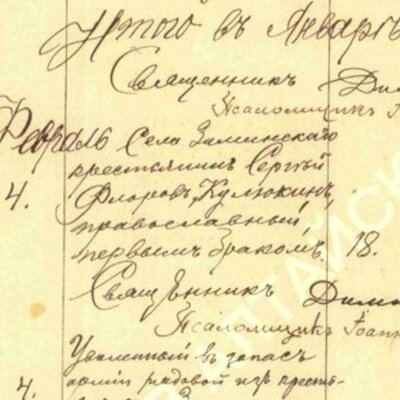 Итого въ Январѣ
Священникъ Дим
Псаломщикъ І
Февраль Села Зиминскаго
крестьянинъ Сергѣй
4. Флоровъ Кулюкинъ,
православный,
первымъ бракомъ. 18.
Священникъ Дими
Псаломщикъ Іоанн
Уволенный въ запасъ
4. арміи рядовой изъ кресть-